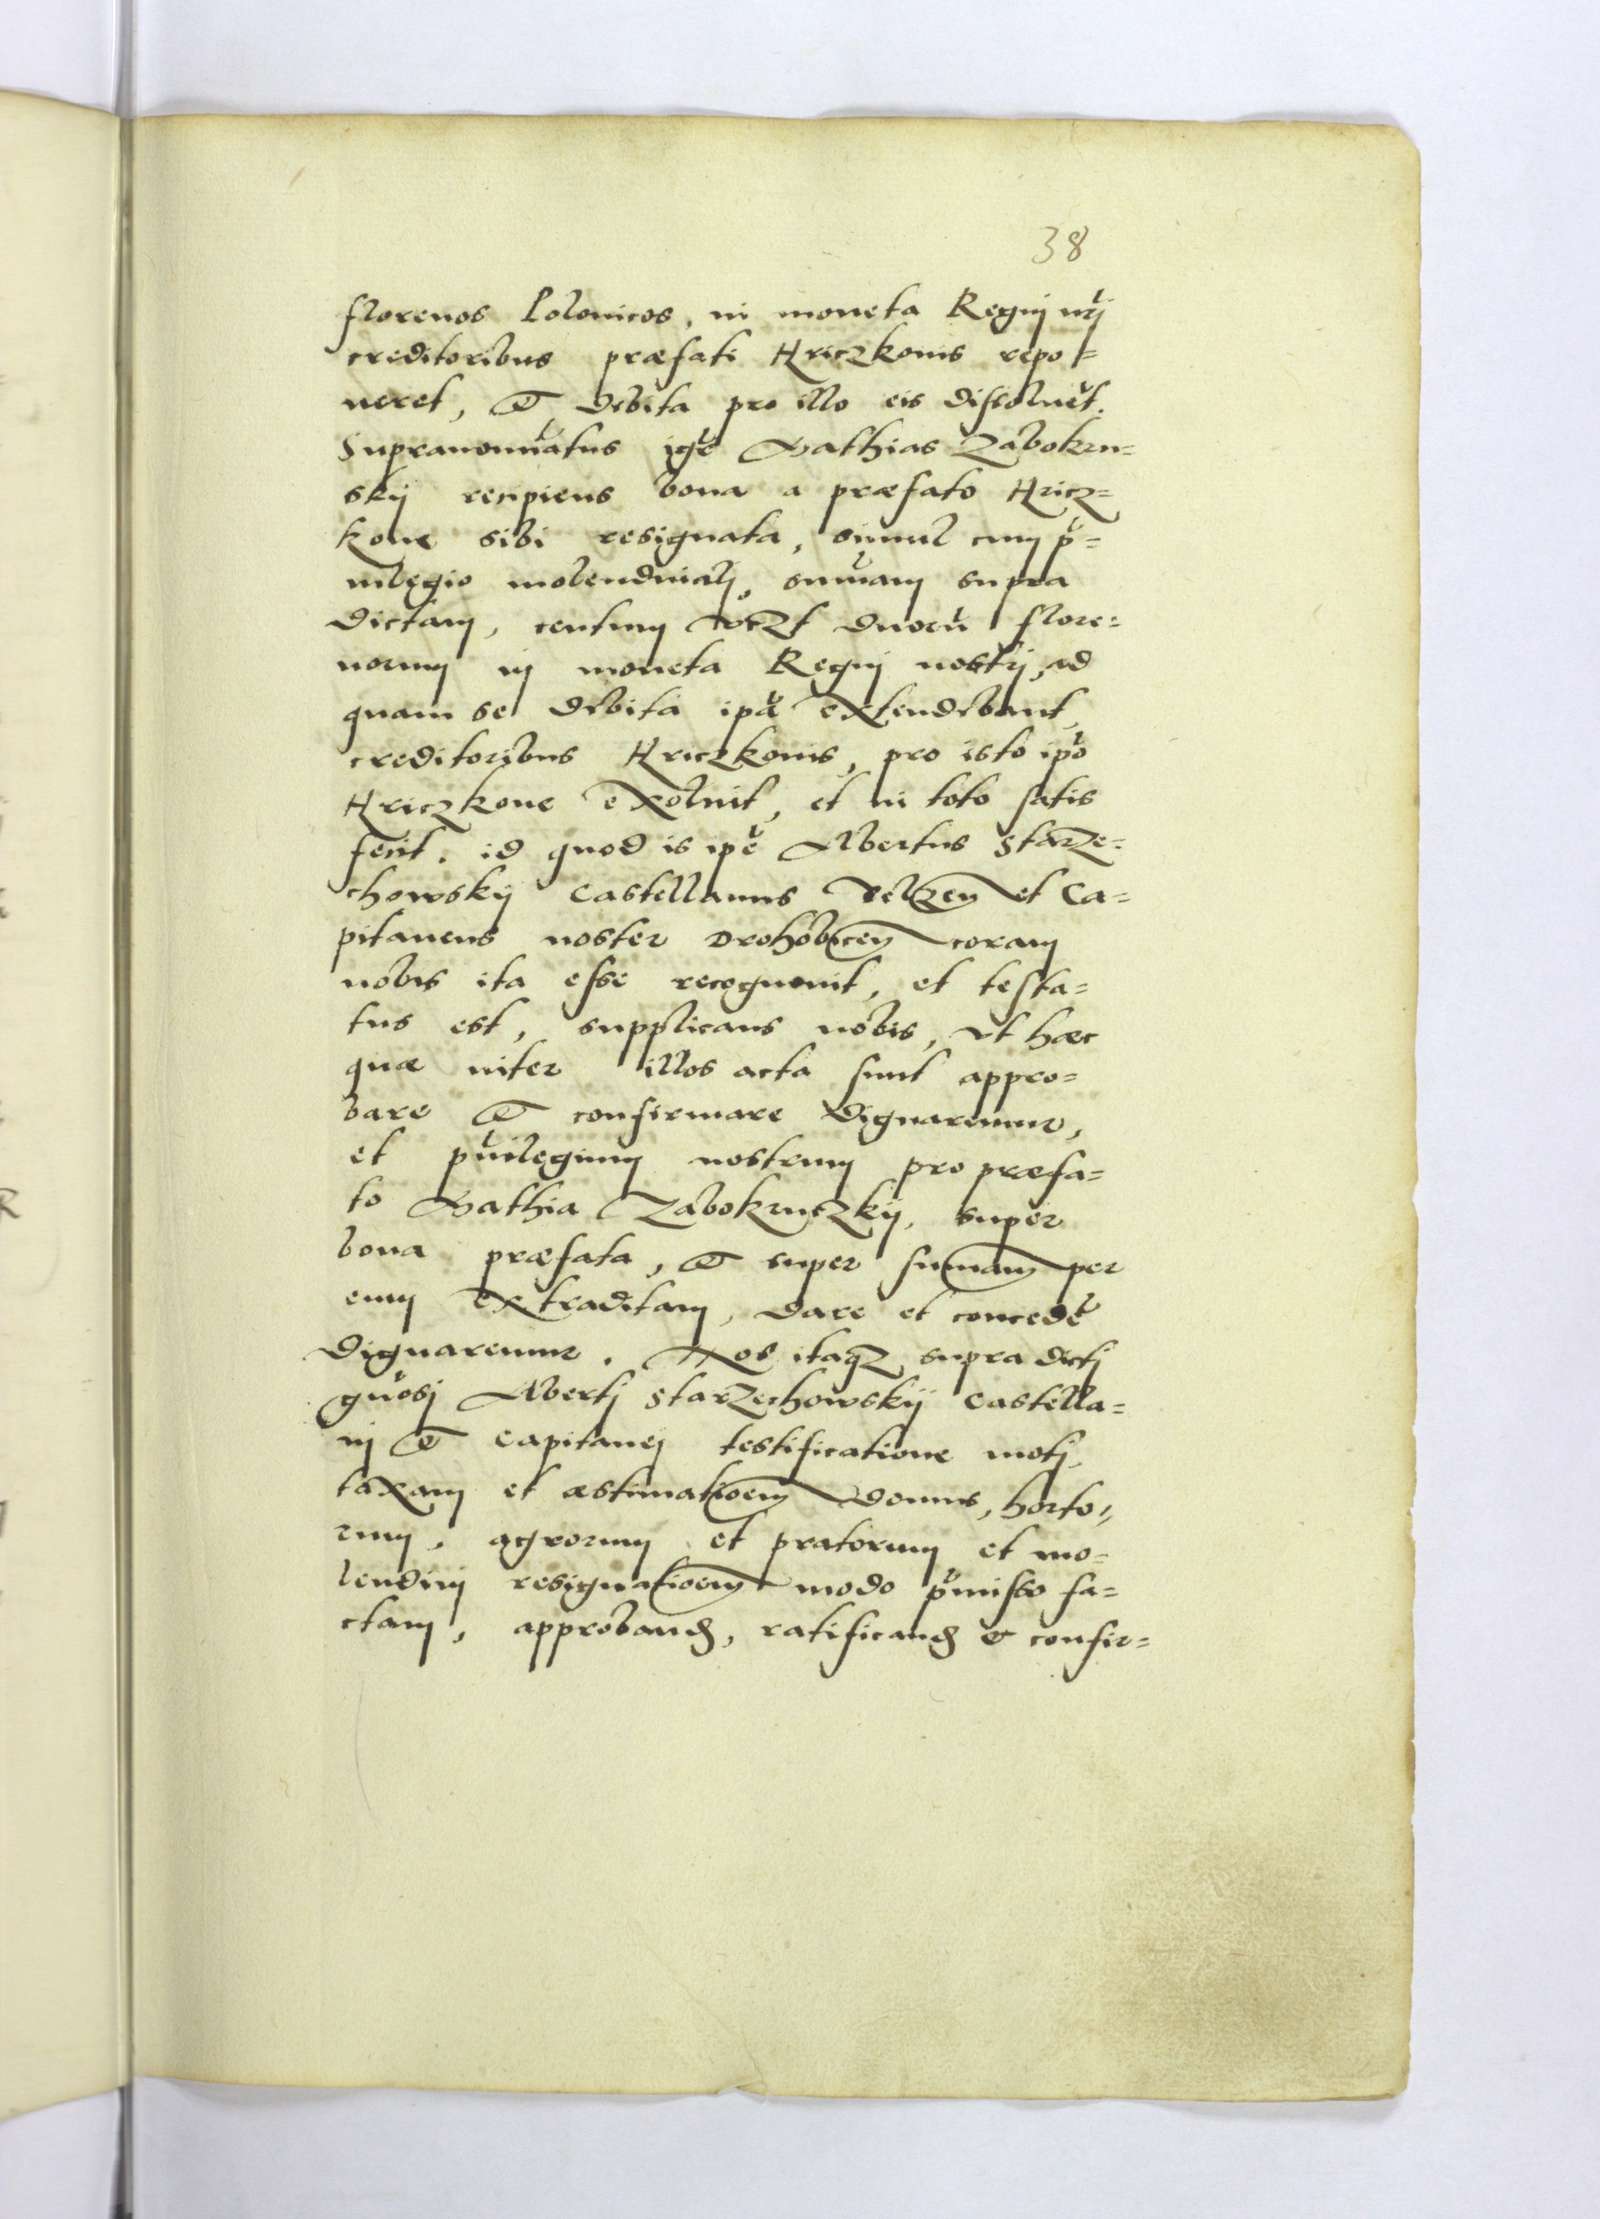 38
florenos Polonicos, in moneta Regnj nrj
creditoribus præfati Hriczkonis repo=
neret, & debita pro illo eis dissoluet.
Supranominatus igr Mathias Zabokru=
skij recipiens bona a præfato Hricz=
kone sibi resignata, simul cum pri=
uilegio molendinalj, summam supra
dictam, centum vczt duorū flore=
norum in moneta Regnj nostrj, ad
quam se debita ipa extendebant,
creditoribus Hriczkonis, pro isto ipo
Hriczkone exoluit, et in toto satis
fecit. id quod is ipe Albertus Starze=
chowskij Castellanus Belzen et Ca=
pitaneus noster Drohobicen coram
nobis ita esse recognouit, et testa=
tus est, supplicans nobis, vt hæc
quæ inter illos acta sunt appro=
bare & confirmare dignaremur,
et priuilegium nostrum pro præfa=
to Mathia Zabokruczkij, super
bona præfata, & super summam per
eum extraditam, dare et concedere
dignaremur. Nos itaqz supra dictj
gnosj Albertj Starzechowskij Castella=
nj & Capitanej testificatione motj,
taxam et æstimationem domus, horto=
rum, agrorum et pratorum et mo=
lendinj resignationem modo præmisso fa=
ctam, approband, ratificand & confir=